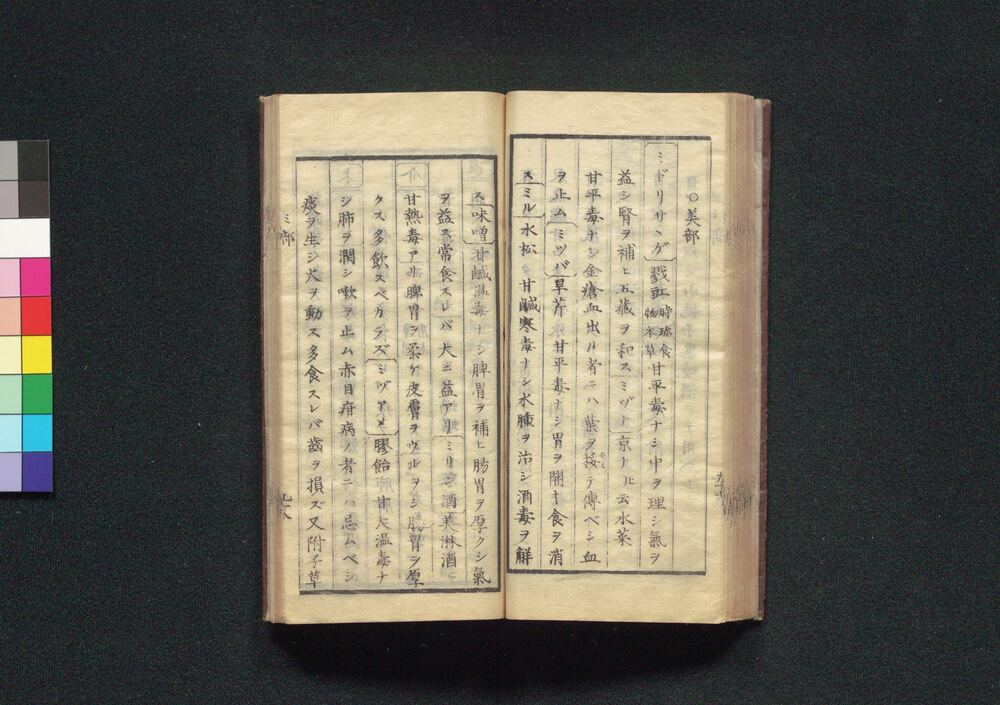 ○美部
ミドリサヽゲ 戮豇 時珎食物本草 甘平毒ナシ中ヲ理シ氣ヲ
益シ腎ヲ補ヒ五藏ヲ和ス ミヅナ 京ナ𪜈云水菜
甘平毒ナシ金瘡血出ル者ニハ葉ヲ挼テ傳ベシ血
ヲ止ム ミツバ 草芹 甘平毒ナシ胃ヲ開キ食ヲ消
ス ミル 水松 甘鹹寒毒ナシ水腫ヲ治シ酒毒ヲ解
ス 味噌 甘鹹温毒ナシ脾胃ヲ補ヒ腸胃ヲ厚クシ氣
ヲ益ス常食スレバ大ニ益アリ ミリン酒 美淋酒
甘熱毒アリ脾胃ヲ柔ゲ皮膚ヲウルヲシ腸胃ヲ厚
クス多飲スベカラズ ミヅアメ 膠飴 甘大温毒ナ
シ肺ヲ潤シ嗽ヲ止ム赤目疳病ノ者ニハ忌ムベシ
痰ヲ生シ火ヲ動ス多食スレバ齒ヲ損ズ又附子草
ミ部